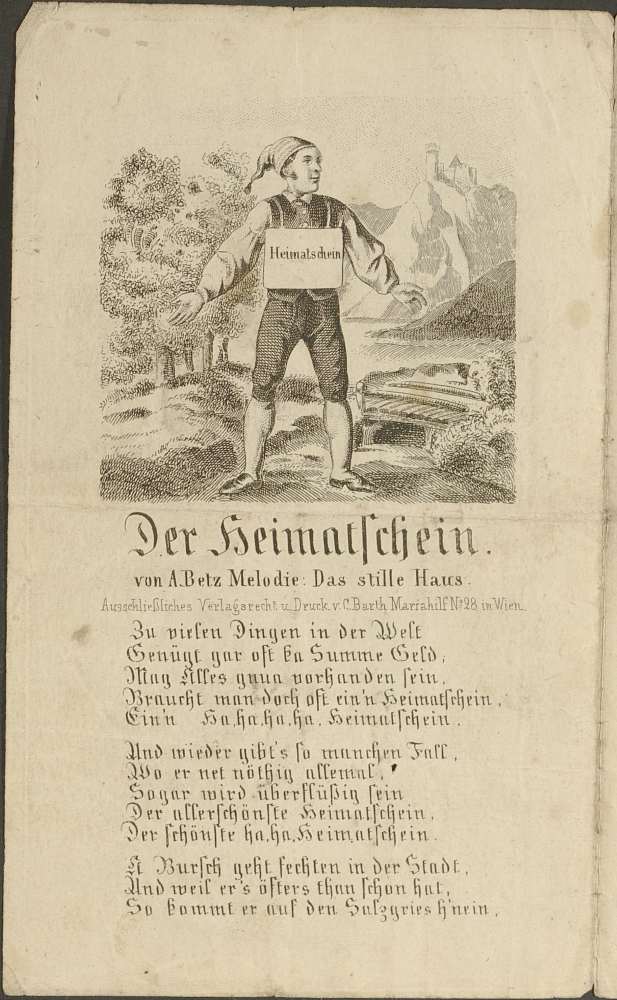 Heimatschein
Der Heimatschein.
von A. Betz Melodie: Das stille Haus.
Ausschließliches Verlagsrecht u. Druck v. C. Barth Mariahilf No 28 in Wien.
Zu vielen Dingen in der Welt
Genügt gar oft ka Summe Geld,
Mag Alles gnua vorhanden sein,
Braucht man doch oft ein'n Heimatschein,
Ein'n Ha, ha, ha, ha, Heimatschein.
Und wieder gibt's so manchen Fall,
Wo er net nöthig allemal,
Sogar wird überflüßig sein
Der allerschönste Heimatschein,
Der schönste ha, ha, Heimatschein.
A Bursch geht fechten in der Stadt,
Und weil er's öfters than schon hat,
So kommt er auf den Salzgries h'nein,